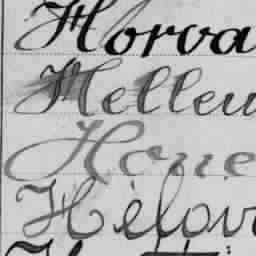 Horva
Helleu
Hone
Hélov